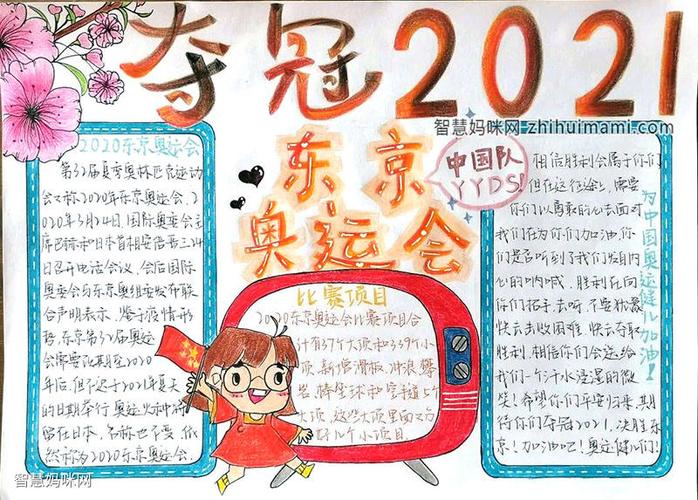 夺冠2021
智慧妈咪网 zhihuimami.com
东京
奥运会
中国队
YYDS!
2020东京奥运会
第32届夏季奥林匹克运动
会又称2020年东京奥运会、2
020年3月24日,国际奥委会主
席巴赫和日本首相安倍晋三24
日召开电话会议,会后国际
奥委会与东京奥组委发布联
合声明表示,鉴于疫情形
势,东京第32届奥运
会需要改期至2020
年后,但不迟于2021年夏天
的日期举行,奥运火炬将
留在日本,名称也不变,依
然称为2020东京奥运会.
比赛项目
2020东京奥运会比赛项目合
计有37个大项和339个小
项,新增滑板,冲浪,攀
岩,棒垒球和空手道5个
大项,这些大项里面又分
好几个小项目.
相信胜利会属于你们
但在这征途上,需要
你们以勇敢的心去面对
我们在为你们加油,你
们是否听到了我们发自内
心的呐喊,胜利在向
你们招手,去吧,不要犹豫
快去击败困难,快去夺取
胜利,相信你们会送给
我们一个汗水浸湿的微
笑!希望你们平安归来,期
待你们夺冠2021,决胜东
京!加油吧!奥运健儿们!
为中国奥运健儿加油!
智慧妈咪网